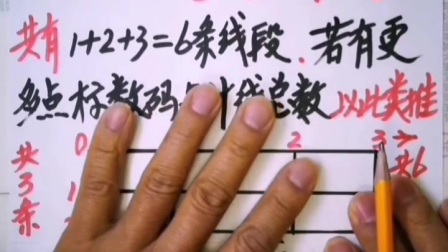 共有1+2+3=6条线段、若有更
多点标数码 线总数 以此类推
0 2 3 >
共 1 共6
3
条